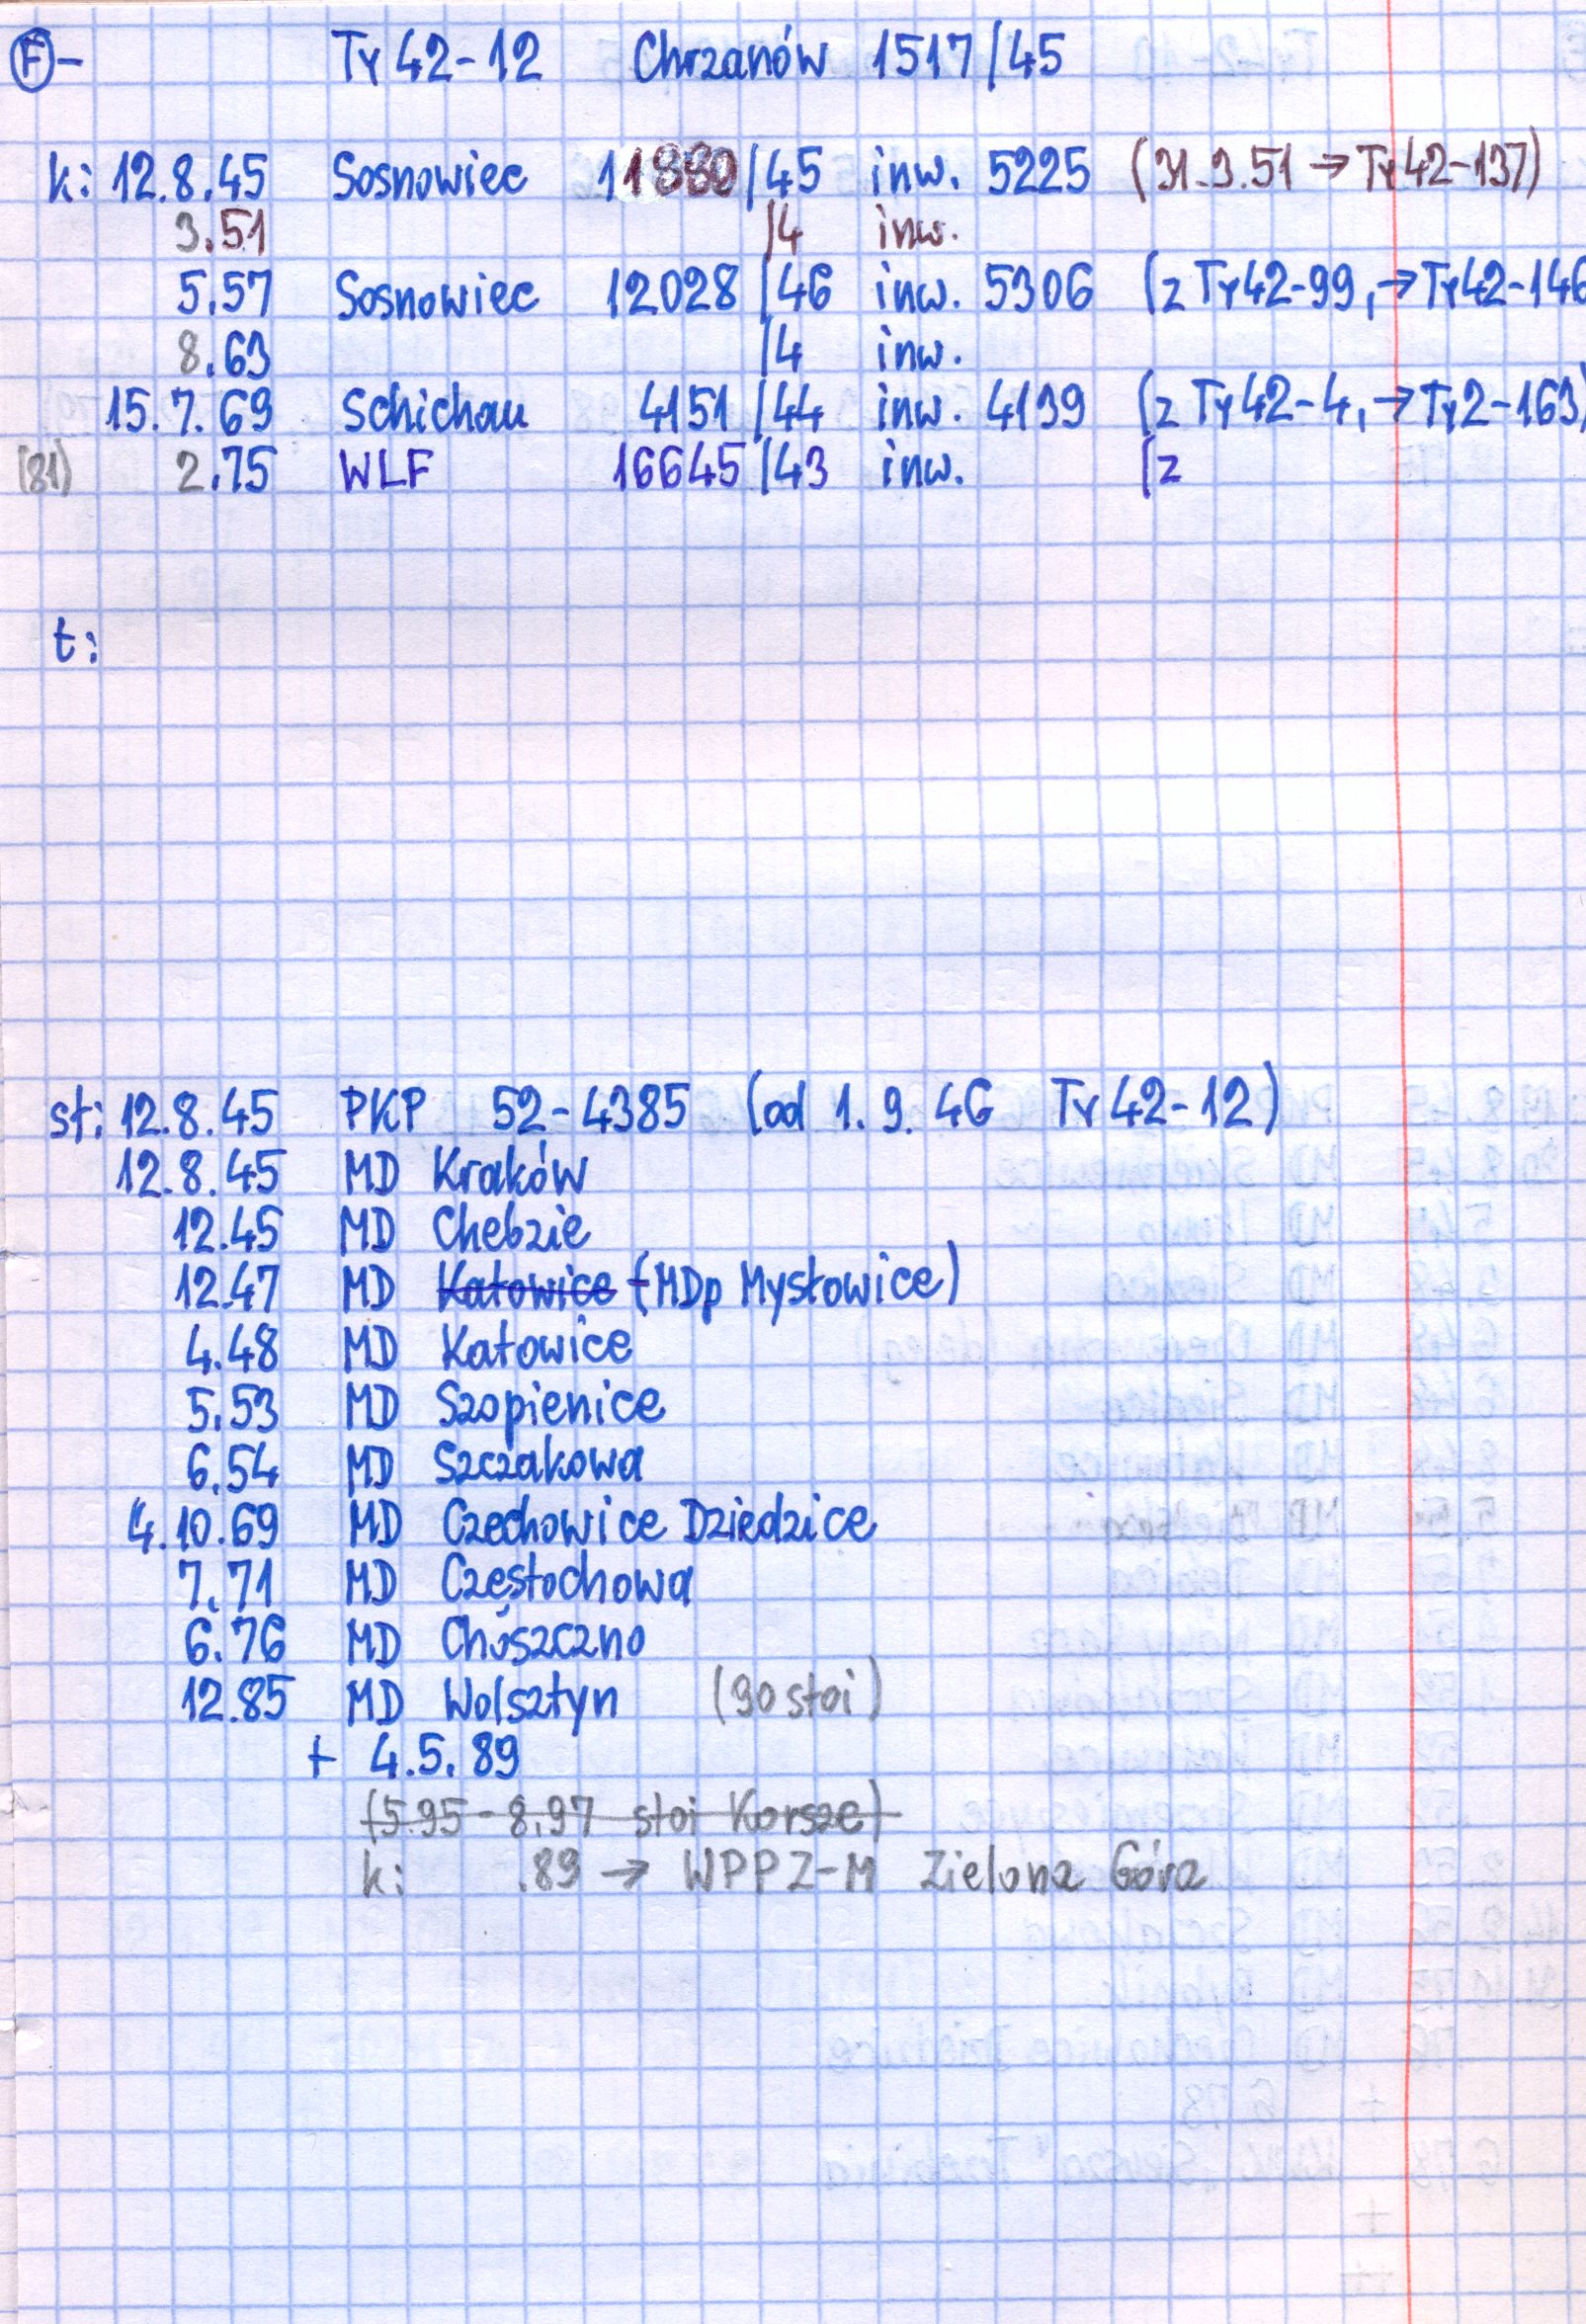 (F)- Ty42-12 Chrzanów 1517/45
k: 12.8.45 Sosnowiec 11880/45 inw. 5225 (31.3.51 → Ty42-137)
3.51 /4 inw.
5.57 Sosnowiec 12028/46 inw. 5306 (z Ty42-99, → Ty42-146
8.63 /4 inw.
15.7.69 Schichau 4151/44 inw. 4139 (z Ty42-4, → Ty2-163)
(81) 2.75 WLF 16645/43 inw. (z
t:
st: 12.8.45 PKP 52-4385 (od 1.9.46 Ty42-12)
12.8.45 MD Kraków
12.45 MD Chebzie
12.47 MD Katowice (MDp Mysłowice)
4.48 MD Katowice
5.53 MD Szopienice
6.54 MD Szczakowa
4.10.69 MD Czechowice Dziedzice
7.71 MD Częstochowa
6.76 MD Choszczno
12.85 MD Wolsztyn (90 stoi)
+ 4.5.89
(5.95-8.97 stoi Korsze)
k: .89 → WPPZ-M Zielona Góra